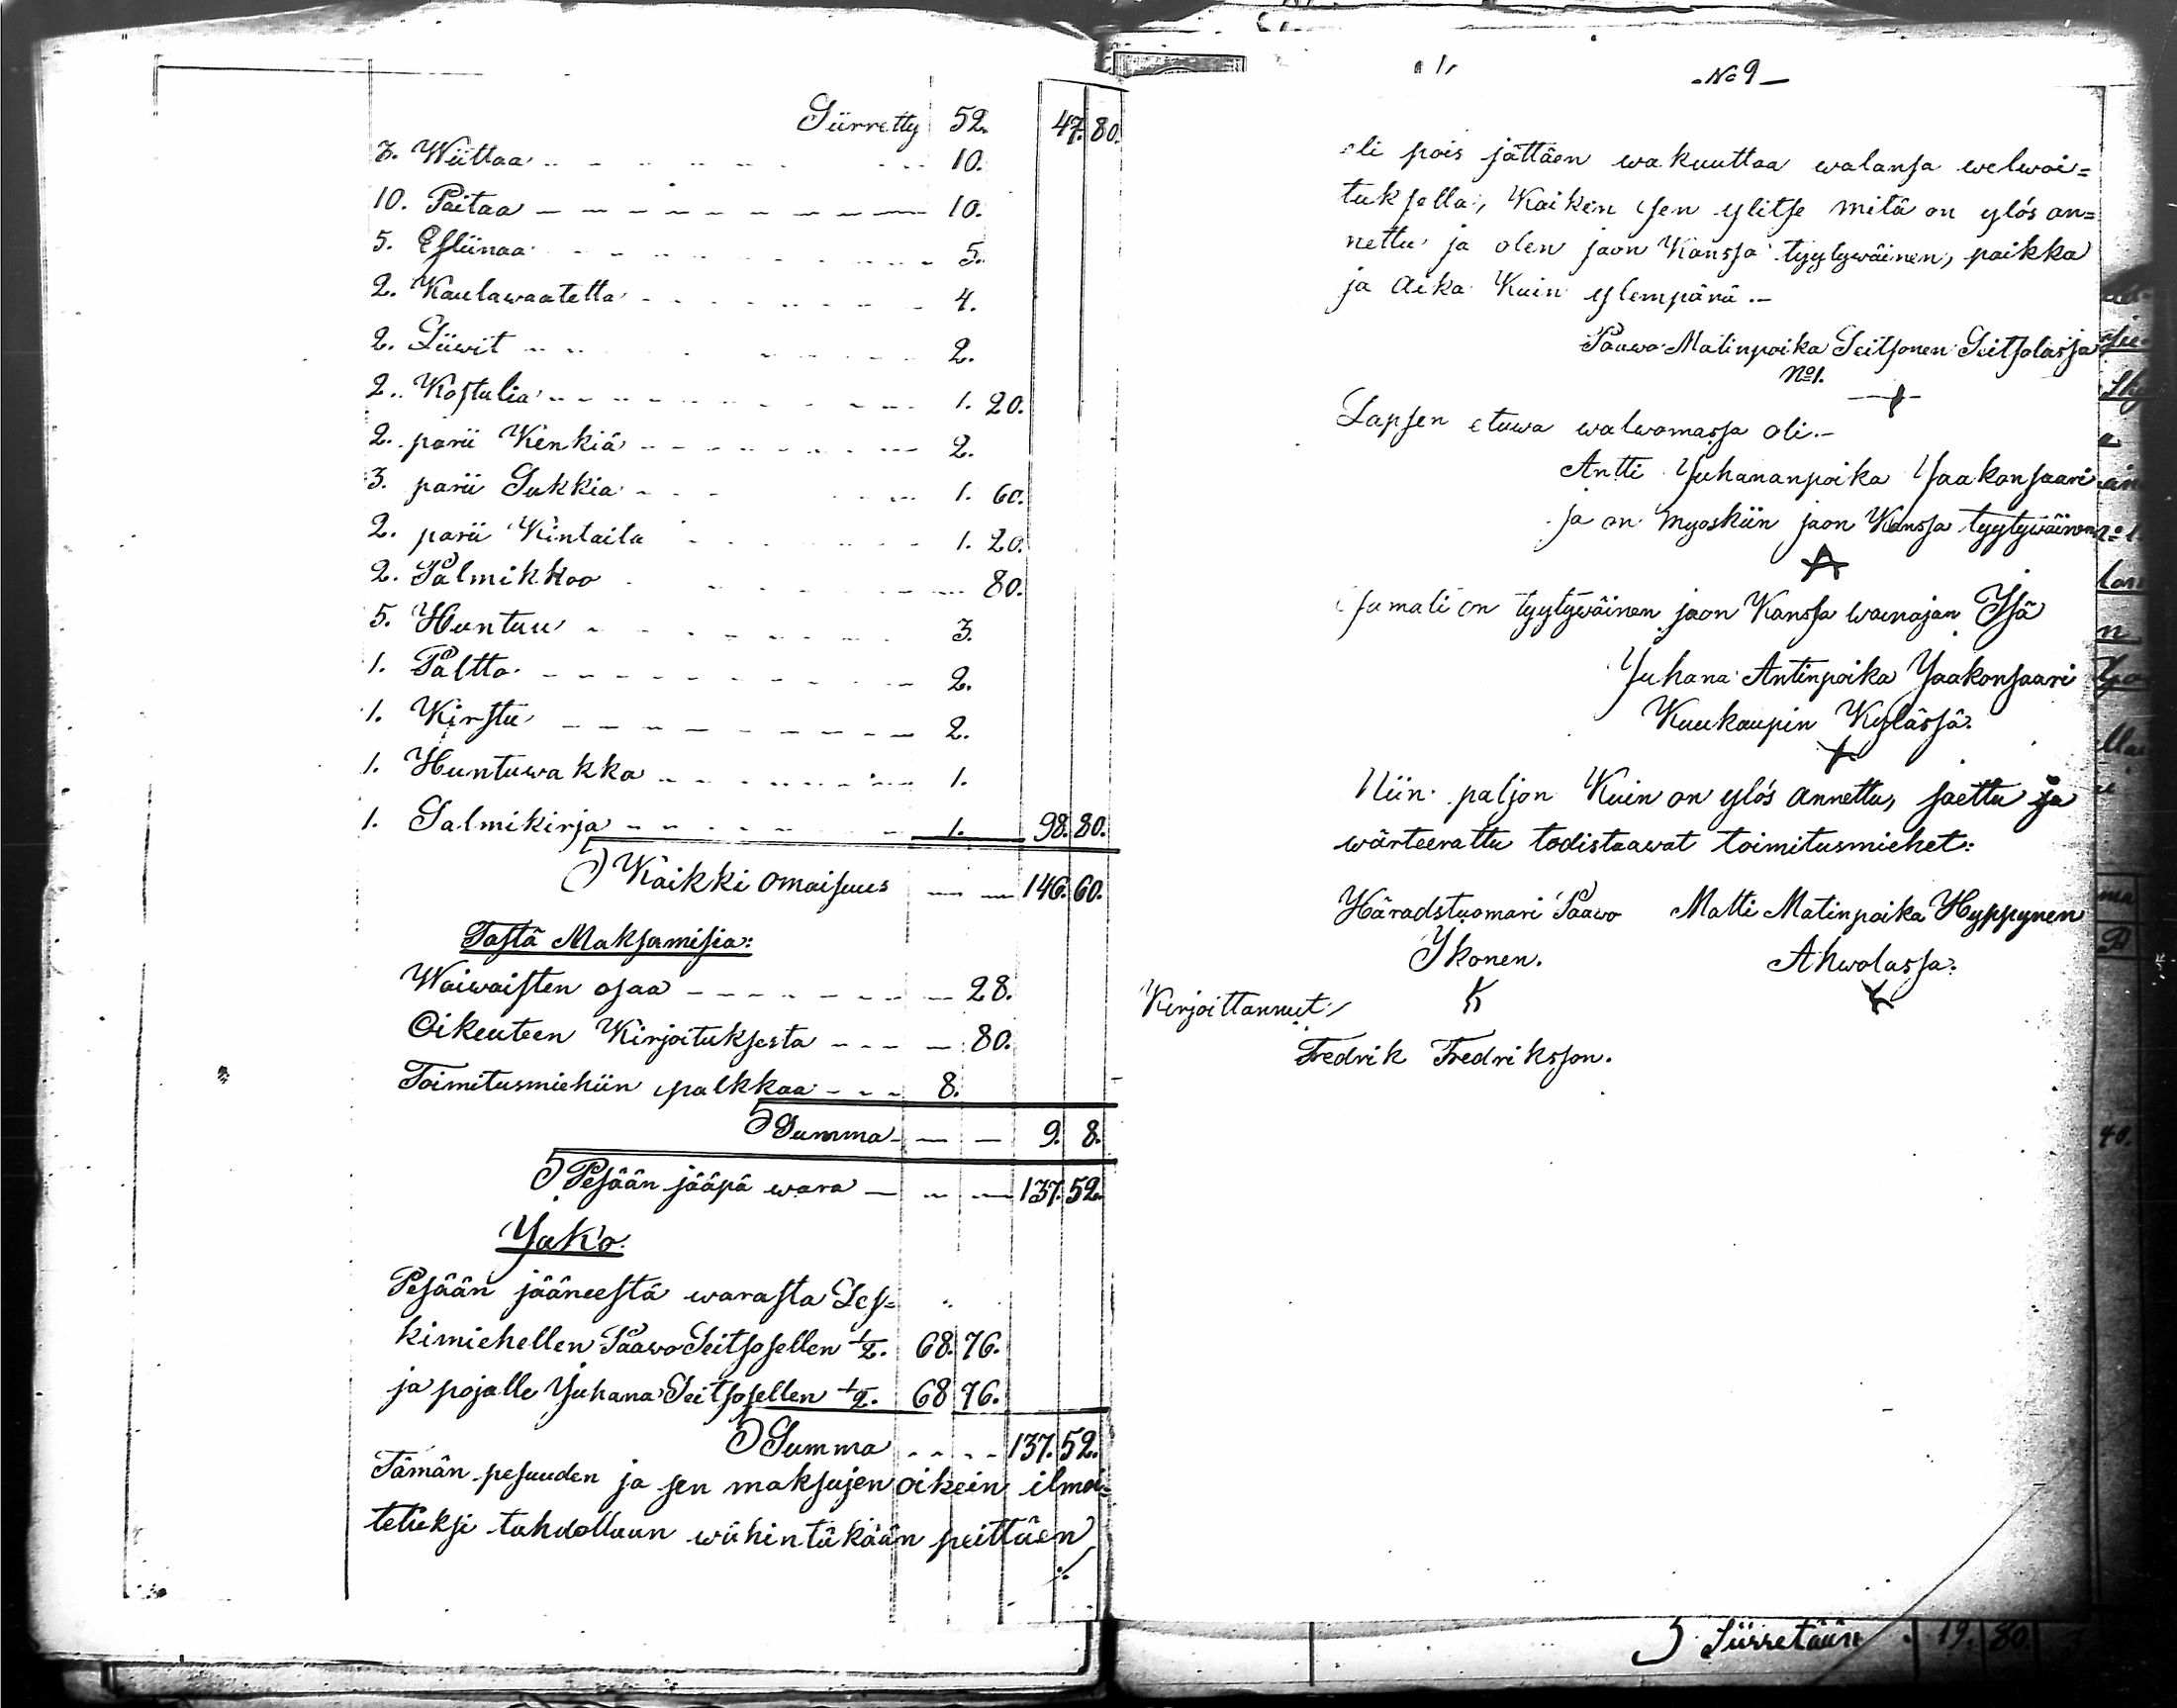 Siirretty 52. 47. 80.
3. Wiittaa 10.
10. Paitaa 10.
5. Esliinaa 5.
2. Kaulawaatetta 4.
2. Liiwit 2.
2. Kostulia 1. 20.
2. parii Kenkiä 2.
3. parii Sukkia 1. 60.
2. parii Kintaita 1. 20.
2. Palmikkoo 80.
5. Huntuu 3.
1. Paltto 2.
1. Kirstu 2.
1. Huntuwakka 1.
1. Salmikirja 1. 98. 80.
Kaikki omaisuus 146. 60.
Tästä Maksamisia:
Waiwaisten osaa 28.
Oikeuteen Kirjoituksesta 80.
Toimitusmiehiin palkkaa 8.
Summa 9. 8.
Pesään jääpä wara 137. 52.
Jako.
Pesään jääneestä warasta Les=
kimiehellen Paawo Seitsosellen 1/2. 68. 76.
ja pojalle Juhana Seitsosellen 1/2. 68 76.
Summa 137. 52.
Tämän pesuuden ja sen maksujen oikein ilmoi=
tetuksi tahdollaan wähintäkään peittäen
./.
No 9
eli pois jättäen wakuuttaa walansa welwoi=
tuksella, Kaiken sen ylitse mitä on ylös an=
nettu ja olen jaon Kanssa tyytywäinen, paikka
ja aika Kuin ylempänä.-
Paawo Matinpoika Seitsonen Seitsolassa
No 1.
Lapsen etuwa walwomassa oli.-
Antti Juhananpoika Jaakonsaari
ja on myöskiin jaon Kanssa tyytywäinen
Samati on tyytywäinen jaon Kanssa wainajan Isä
Juhana Antinpoika Jaakonsaari
Kuukaupin Kylässä.
Niin paljon Kuin on ylös annettu, jaettu ja
wärteerattu todistaawat toimitusmiehet:
Häradstuomari Paawo Matti Matinpoika Hyppynen
Ikonen. Ahwolassa.
Kirjoittannut
Fredrik Fredriksson.
Siirretään 19. 80.